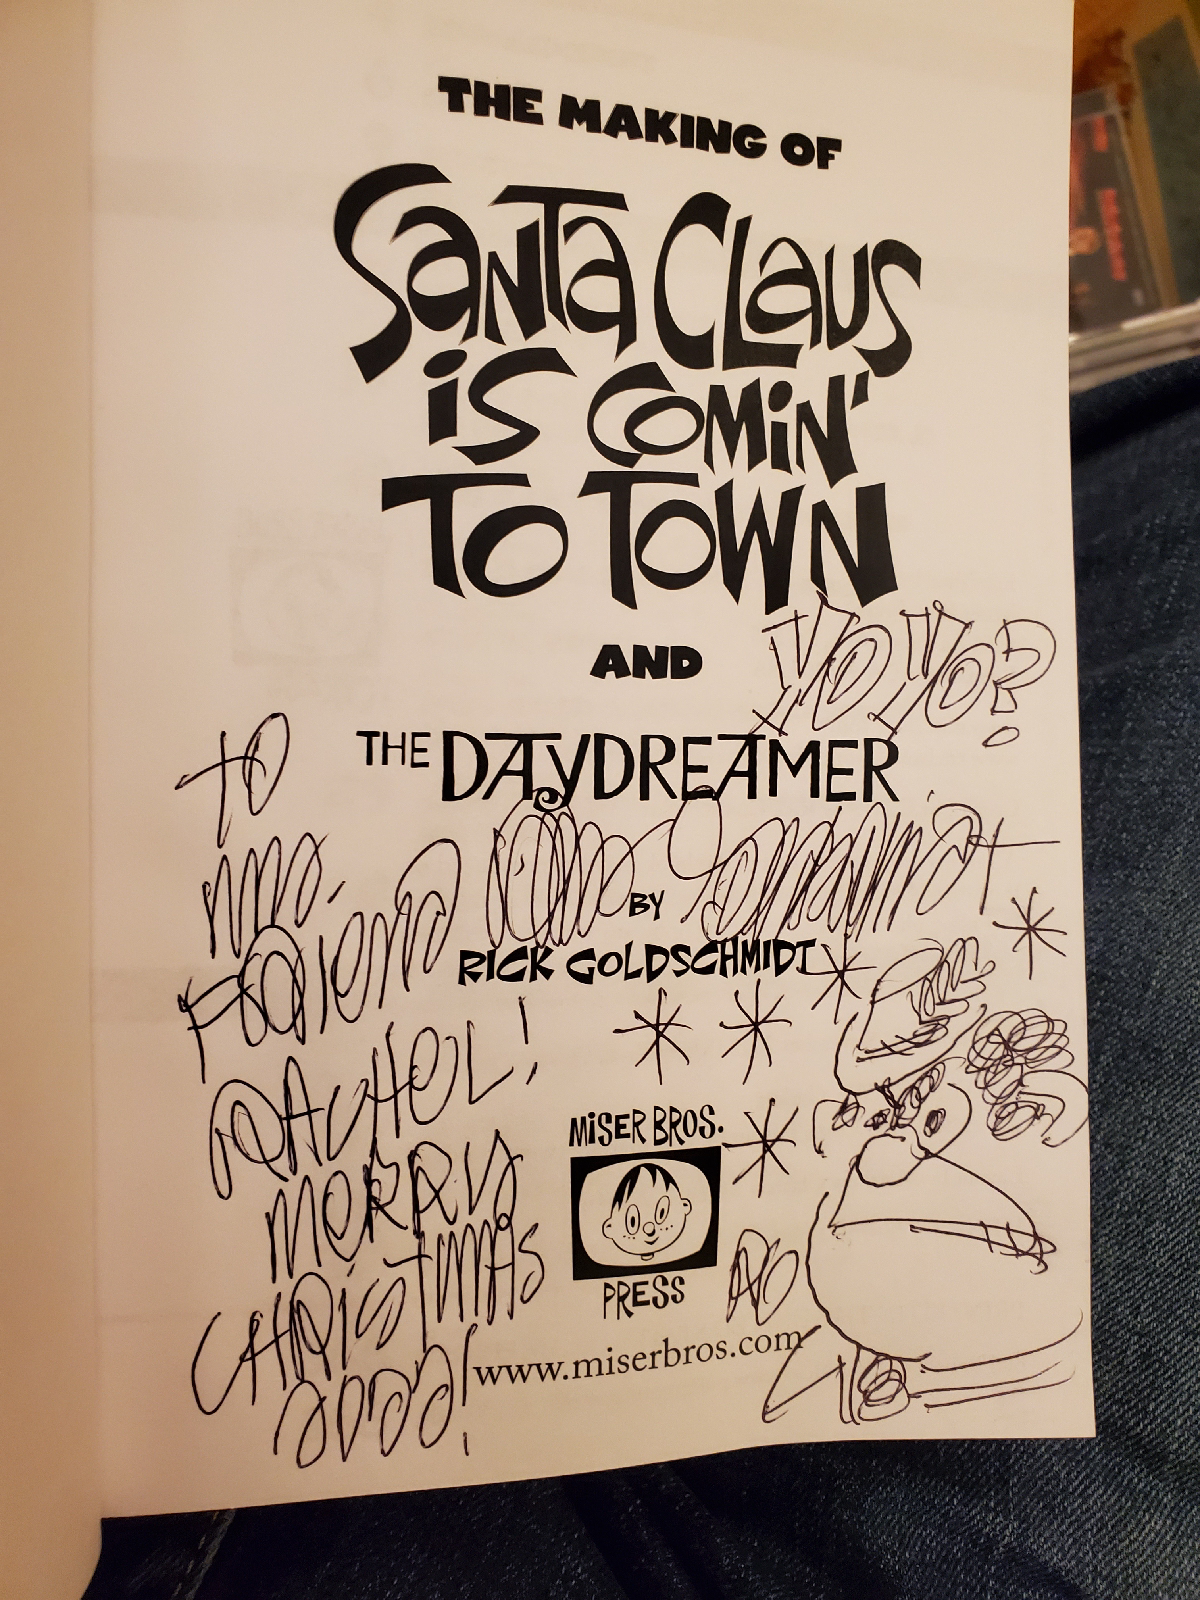 THE MAKING OF
SANTA CLAUS
iS COMiN'
TO TOWN
YO YO?
AND
THE DAYDREAMER
TO
FRIEND
RACHEL!
MERRY
CHRISTMAS
BY
RICK GOLDSCHMIDT
MiSER BROS.
PRESS
www.miserbros.com